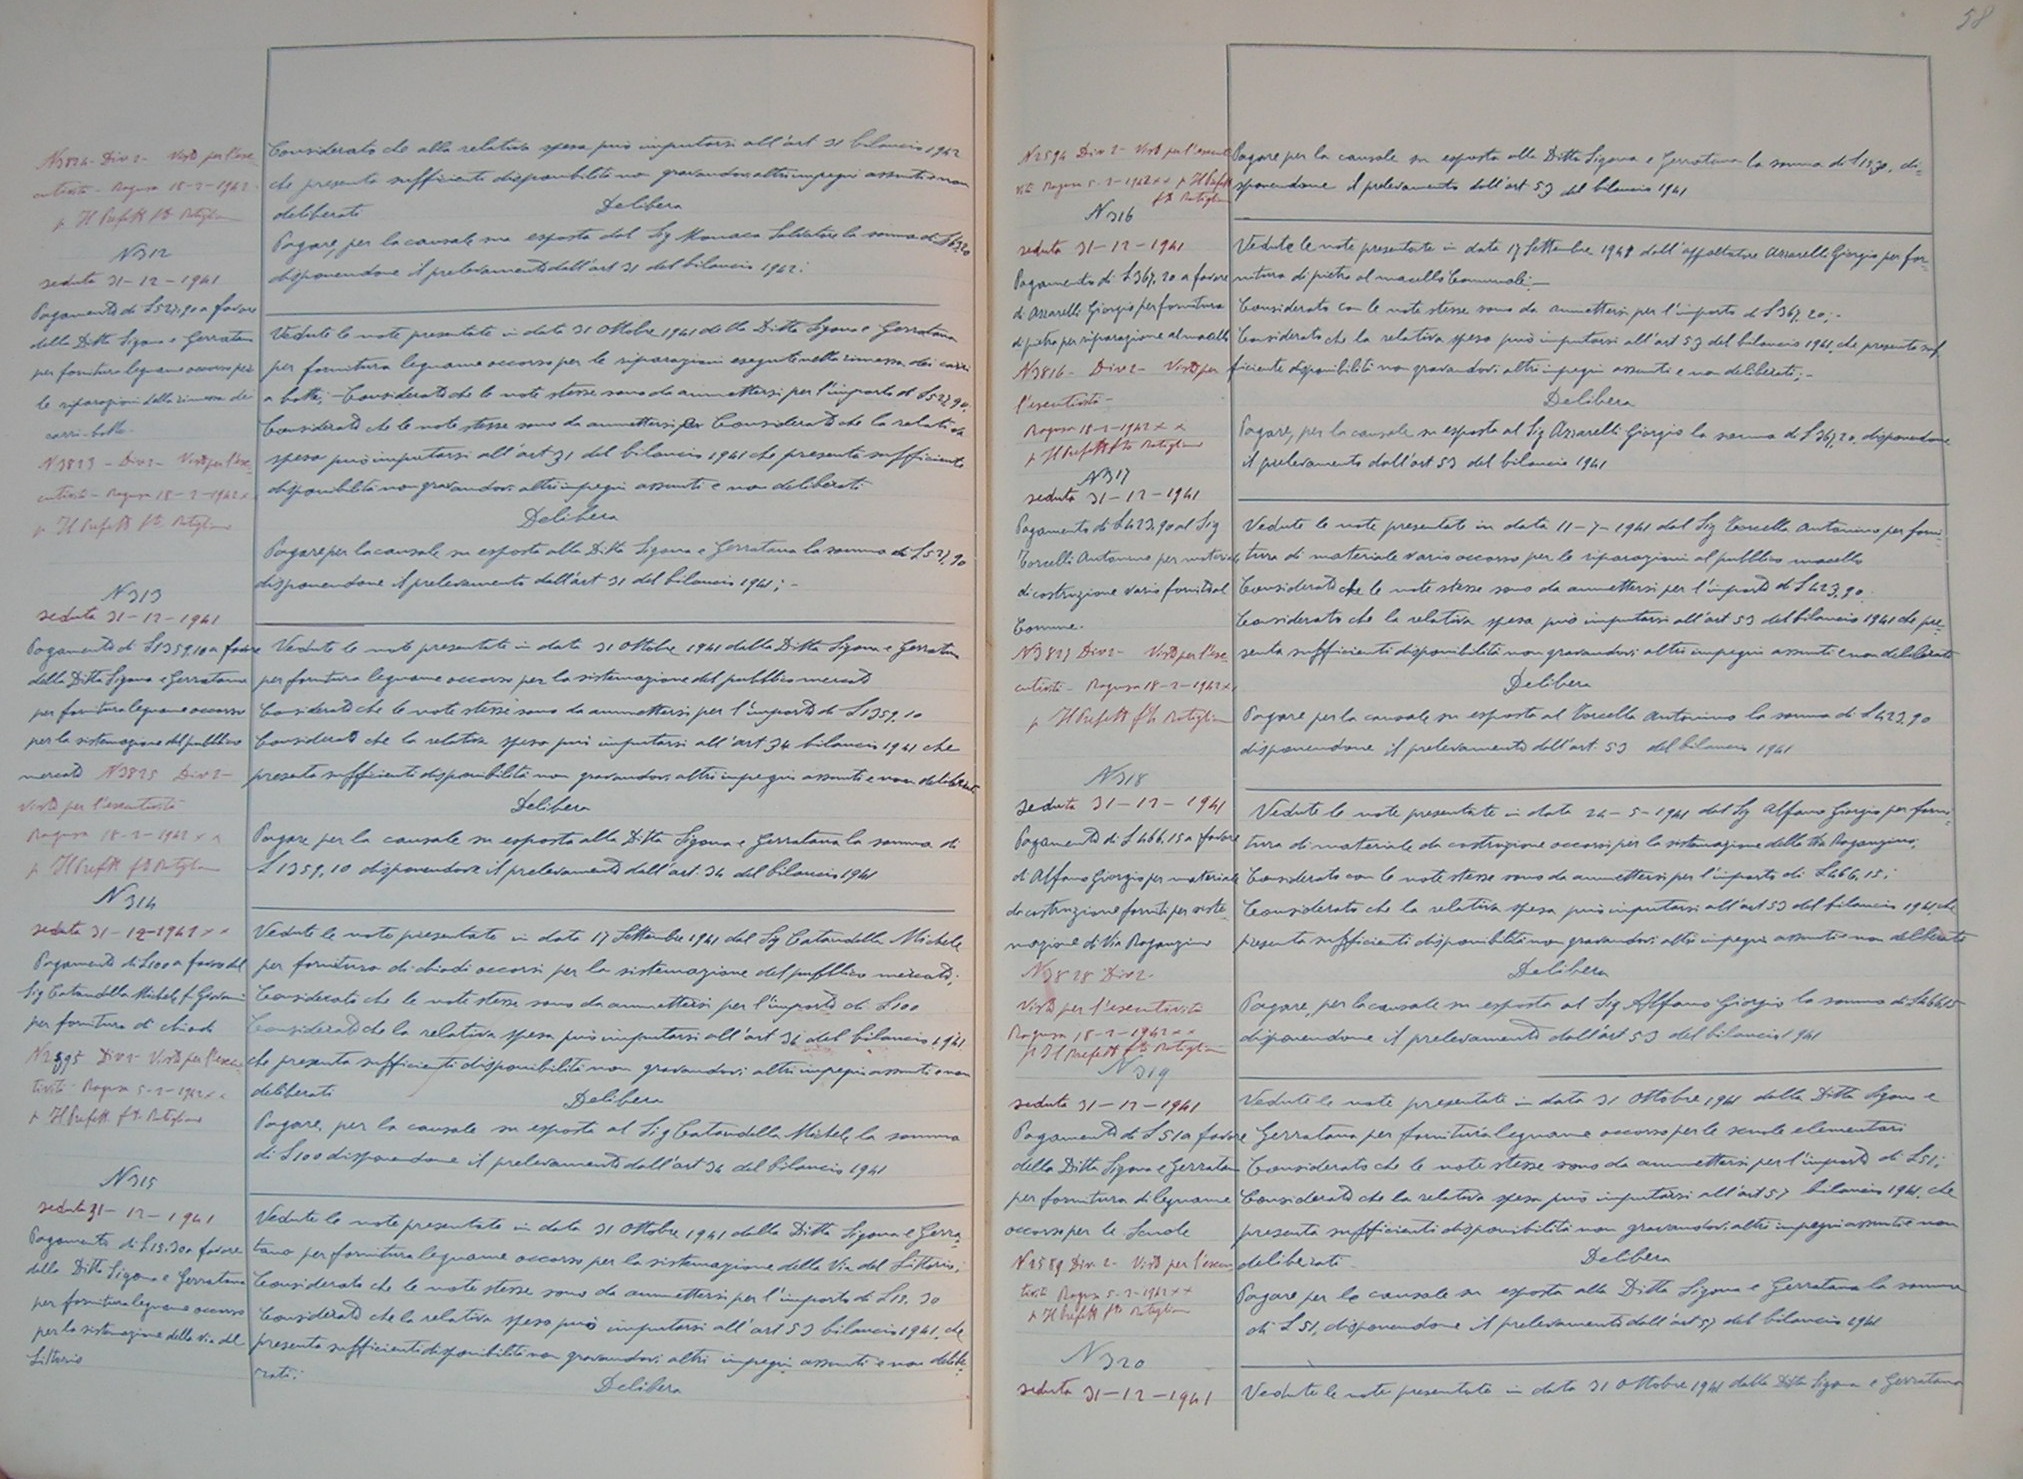 N3824 - Div 2 - Visto per l'ese-
cutività - Ragusa 18-2-1942.
p Il Prefetto fto
Considerato che alla relativa spesa può imputarsi all'art 31 bilancio 1942
che presenta sufficiente disponibilità non gravandovi altri impegni assunti e non
deliberati Delibera
Pagare, per la causale su esposta dal Sig Monaca Salvatore la somma di
disponendone il prelevamento dall'art 31 del bilancio 1942:
N 312
seduta 31-12-1941
Pagamento di £527,90 a favore
della Ditta Sigona e Gerratana
per fornitura legname occorso per
le riparazioni della rimessa dei
carri-botte
N3823 - Div 2 - Visto per l'ese-
cutività - Ragusa 18-2-1942 x
p Il Prefetto fto
Vedute le note presentate in data 31 Ottobre 1941 della Ditta Sigona e Gerratana
per fornitura legname occorso per le riparazioni eseguite nella rimessa dei carri
a botte; - Considerato che le note stesse sono da ammettersi per l'importo di £527,90.
Considerato che le note stesse sono da ammettersi per Considerato che la relativa
spesa può imputarsi all'art 31 del bilancio 1941 che presenta sufficiente
disponibilità non gravandovi altri impegni assunti e non deliberati.
Delibera
Pagare per la causale su esposta alla Ditta Sigona e Gerratana la somma di £527,90
disponendone il prelevamento dall'art 31 del bilancio 1941; -
N 313
seduta 31-12-1941
Pagamento di £1359.10 a favore
della Ditta Sigona e Gerratana
per fornitura legname occorso
per la sistemazione del pubblico
mercato N3825 Div 2 -
Visto per l'esecutività
Ragusa 18-2-1942 x x
p Il Prefetto fto
Vedute le note presentate in data 31 Ottobre 1941 dalla Ditta Sigona e Gerratana
per fornitura legname occorso per la sistemazione del pubblico mercato
Considerato che le note stesse sono da ammettersi per l'importo di £1359.10
Considerato che la relativa spesa può imputarsi all'art 34 bilancio 1941 che
presenta sufficienti disponibilità non gravandovi altri impegni assunti e non deliberati
Delibera
Pagare per la causale su esposta alla Ditta Sigona e Gerratana la somma di
£1359,10 disponendone il prelevamento dall'art. 34 del bilancio 1941
N 314
seduta 31-12-1941 x x
Pagamento di £100 a favore del
Sig Cataudella Michele f. Giovanni
per fornitura di chiodi
N2595 Div 2 Visto per l'esecu
tività - Ragusa 5-2-1942 x x
p Il Prefetto fto
Vedute le note presentate in data 17 Settembre 1941 dal Sig Cataudella Michele
per fornitura di chiodi occorsi per la sistemazione del pubblico mercato;
Considerato che le note stesse sono da ammettersi per l'importo di £100
Considerato che la relativa spesa può imputarsi all'art 34 del bilancio 1941
che presenta sufficienti disponibilità non gravandovi altri impegni assunti e non
deliberati Delibera
Pagare, per la causale su esposta al Sig Cataudella Michele la somma
di £100 disponendone il prelevamento dall'art 34 del bilancio 1941
N 315
seduta 31-12-1941
Pagamento di £13.30 a favore
della Ditta Sigona e Gerratana
per fornitura legname occorso
per la sistemazione della Via del
Littorio
Vedute le note presentate in data 31 Ottobre 1941 dalla Ditta Sigona e Gerra-
tana per fornitura legname occorso per la sistemazione della Via del Littorio;
Considerato che le note stesse sono da ammettersi per l'importo di £13.30
Considerato che la relativa spesa può imputarsi all'art 53 bilancio 1941, che
presenta sufficienti disponibilità non gravandovi altri impegni assunti e non delibe-
rati: Delibera
58
N2594 Div 2 - Visto per l'esecuti
vità Ragusa 5-2-1942 x x p Il Prefetto
fto
Pagare per la causale su esposta alla Ditta Sigona e Gerratana la somma di £13,30, di-
sponendone il prelevamento dall'art 53 del bilancio 1941
N 316
seduta 31-12-1941
Pagamento di £367,20 a favore
di Assarelli Giorgio per fornitura
di pietra per riparazione al macello
N3816 - Div 2 - Visto per
l'esecutività -
Ragusa 18-2-1942 x x
p Il Prefetto fto
Vedute le note presentate in data 17 Settembre 1941 dall'appaltatore Assarelli Giorgio per for-
nitura di pietra al macello Comunale; -
Considerato con le note stesse sono da ammettersi per l'importo di £367.20; -
Considerato che la relativa spesa può imputarsi all'art 53 del bilancio 1941, che presenta suf-
ficiente disponibilità non gravandovi altri impegni assunti e non deliberati; -
Delibera
Pagare, per la causale su esposta al Sig Assarelli Giorgio la somma di £367,20, disponendone
il prelevamento dall'art 53 del bilancio 1941
N 317
seduta 31-12-1941
Pagamento di £423,90 al Sig
Torcelli Antonino per materiale
di costruzione vario fornito al
Comune.
N3827 Div 2 - Visto per l'ese-
cutività - Ragusa 18-2-1942 x x
p Il Prefetto fto
Vedute le note presentate in data 11-7-1941 dal Sig Torcella Antonino per forni-
tura di materiale vario occorso per le riparazioni al pubblico macello
Considerato che le note stesse sono da ammettersi per l'importo di £423,90.
Considerato che la relativa spesa può imputarsi all'art 53 del bilancio 1941 che pre-
senta sufficienti disponibilità non gravandovi altri impegni assunti e non deliberati
Delibera
Pagare per la causale su esposta al Torcella Antonino la somma di £423,90
disponendone il prelevamento dall'art. 53 del bilancio 1941
N 318
seduta 31-12-1941
Pagamento di £466.15 a favore
di Alfano Giorgio per materiale
da costruzione forniti per siste-
mazione di Via Roganzino
N3828 Div 2 -
Visto per l'esecutività
Ragusa 18-2-1942 x x
p Il Prefetto fto
Vedute le note presentate in data 24-5-1941 dal Sig Alfano Giorgio per forni-
tura di materiale da costruzione occorsi per la sistemazione della Via Roganzino;
Considerato con le note stesse sono da ammettersi per l'importo di £466,15;
Considerato che la relativa spesa può imputarsi all'art 53 del bilancio 1941, che
presenta sufficienti disponibilità non gravandovi altri impegni assunti e non deliberati
Delibera
Pagare, per la causale su esposta al Sig. Alfano Giorgio la somma di £466.15
disponendone il prelevamento dall'art 53 del bilancio 1941
N 319
seduta 31-12-1941
Pagamento di £51 a favore
della Ditta Sigona e Gerratana
per fornitura di legname
occorso per le Scuole
N2589 Div 2 - Visto per l'esecu
tività Ragusa 5-2-1942 x x
p Il Prefetto fto
Vedute le note presentate in data 31 Ottobre 1941 dalla Ditta Sigona e
Gerratana per fornitura legname occorso per le scuole elementari
Considerato che le note stesse sono da ammettersi per l'importo di £51;
Considerato che la relativa spesa può imputarsi all'art 57 bilancio 1941, che
presenta sufficienti disponibilità non gravandovi altri impegni assunti e non
deliberati - Delibera
Pagare per la causale su esposta alla Ditta Sigona e Gerratana la somma
di £51, disponendone il prelevamento dall'art 57 del bilancio 1941
N 320
seduta 31-12-1941
Vedute le note presentate in data 31 Ottobre 1941 dalla Ditta Sigona e Gerratana